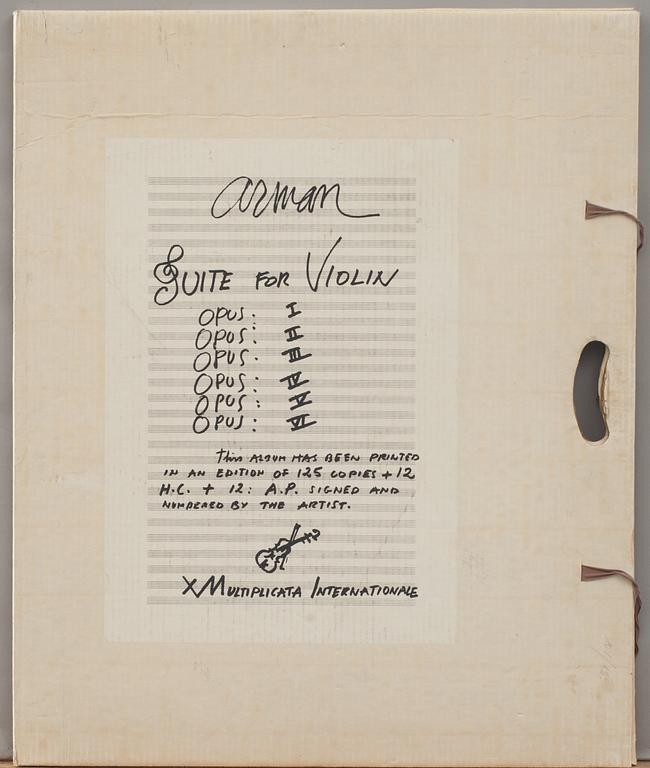 arman
SUITE FOR VIOLIN
OPUS: I
OPUS: II
OPUS: III
OPUS: IV
OPUS: V
OPUS: VI
this ALBUM HAS BEEN PRINTED
IN AN EDITION OF 125 COPIES + 12
H.C. + 12: A.P. SIGNED AND
NUMBERED BY THE ARTIST.
XMULTIPLICATA INTERNATIONALE